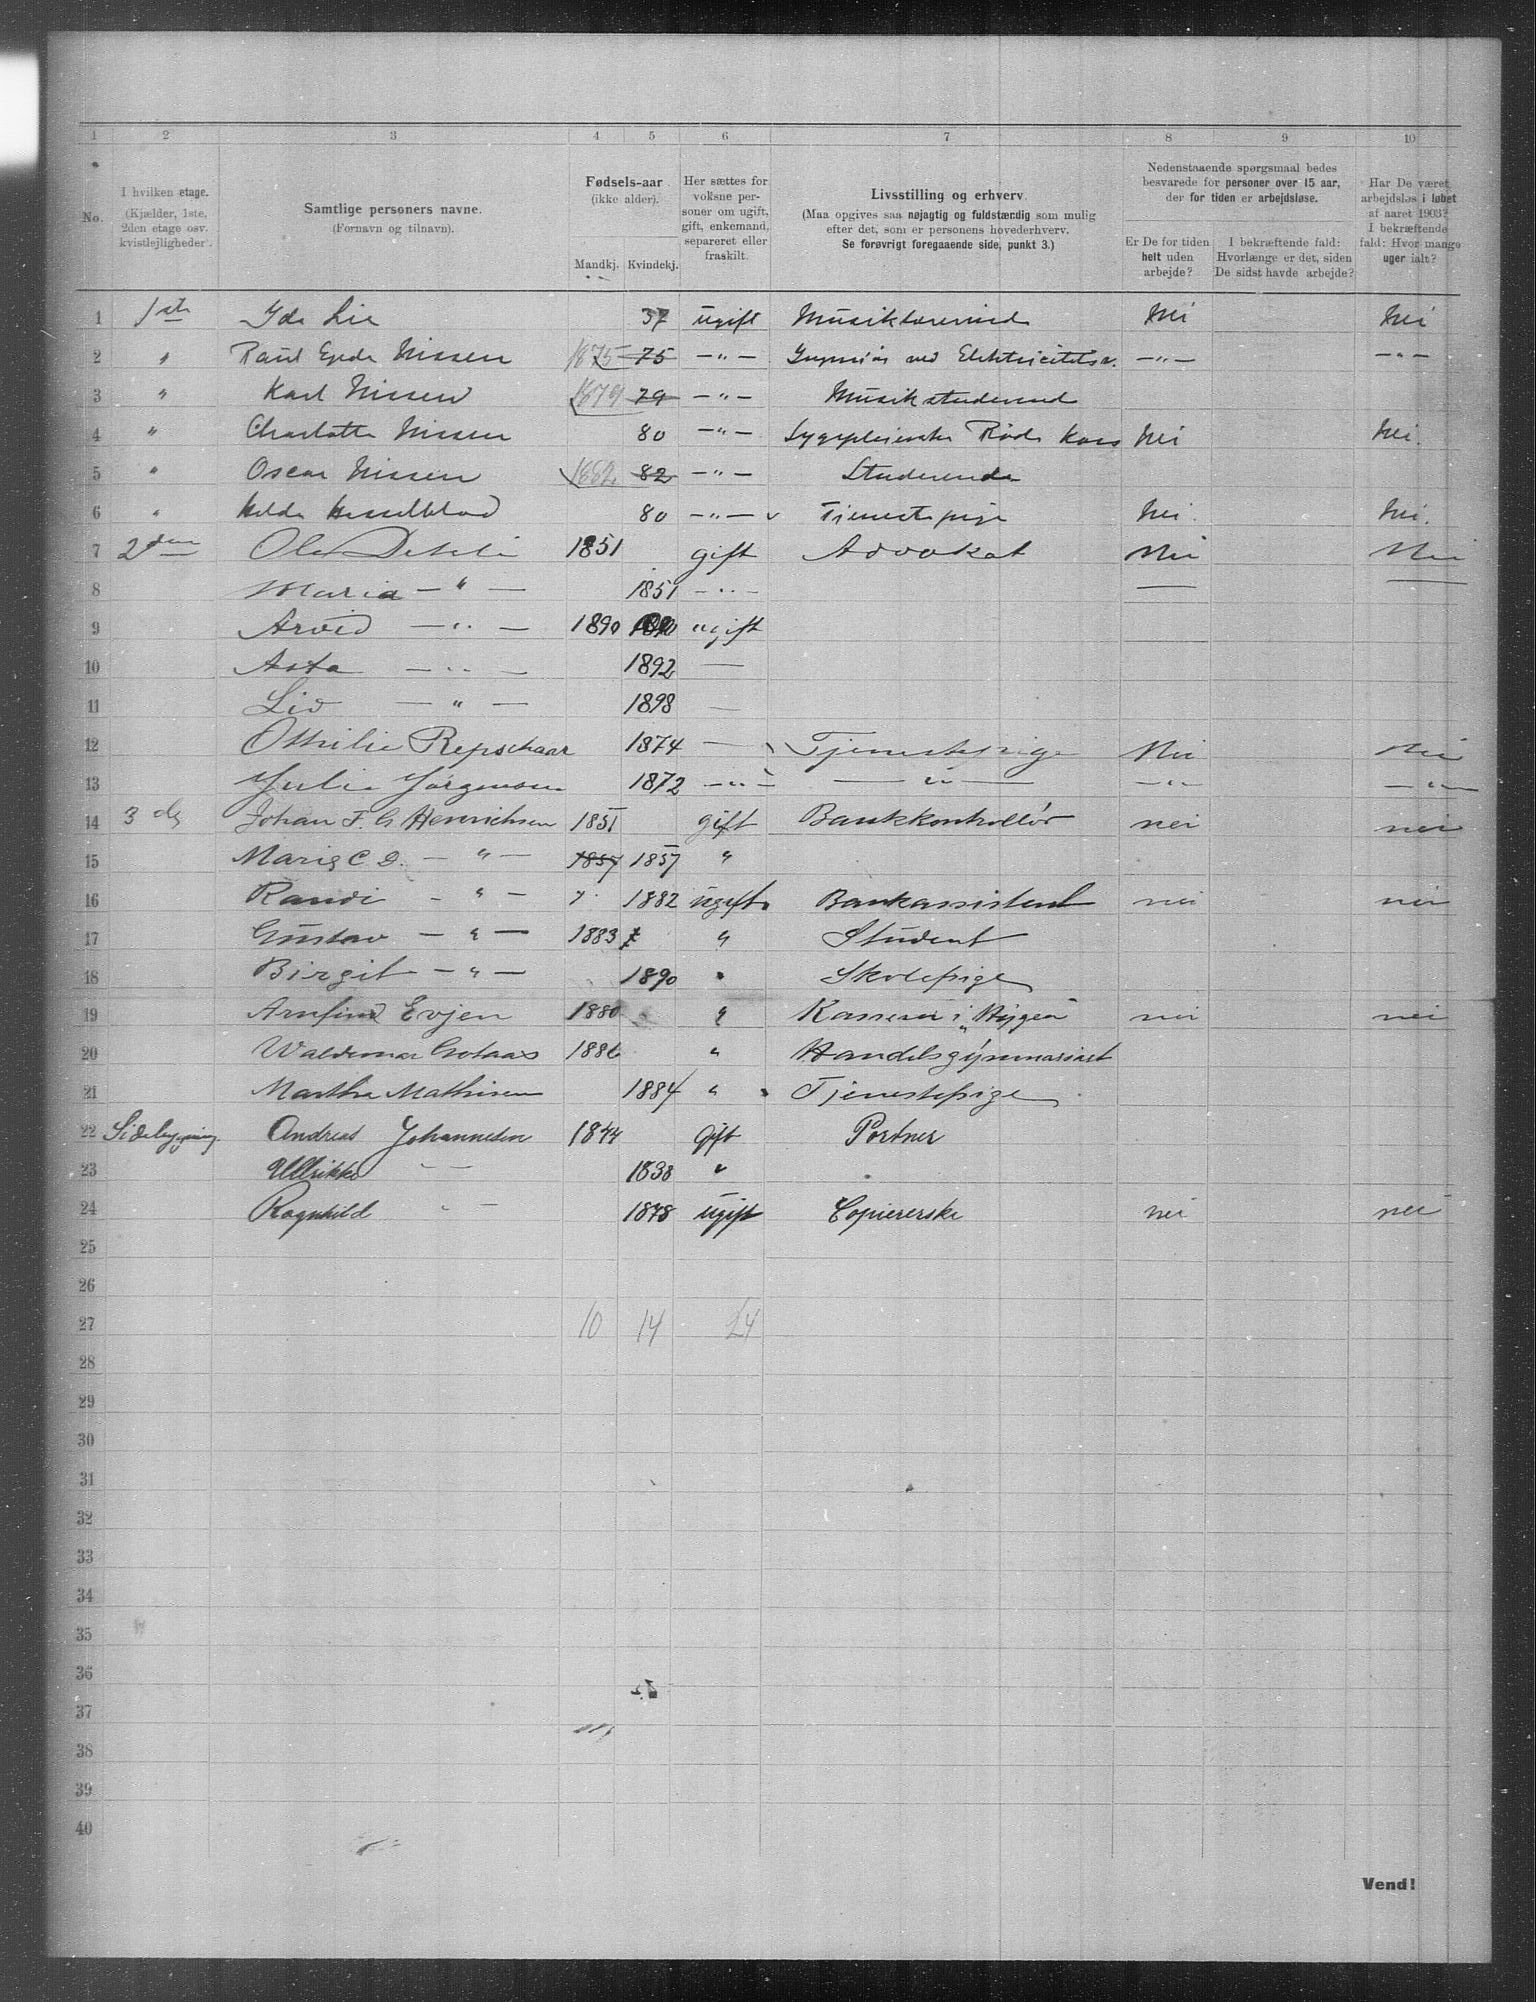 1 2 3 4 5 6 7 8 9 10
No.
I hvilken etage.
(Kjælder, 1ste,
2den etage osv.
kvistlejligheder).
Samtlige personers navne.
(Fornavn og tilnavn).
Fødsels-aar
(ikke alder).
Mandkj. Kvindekj.
Her sættes for
voksne per-
soner om ugift,
gift, enkemand,
separeret eller
fraskilt.
Livsstilling og erhverv
(Maa opgives saa nøjagtig og fuldstændig som mulig
efter det, som er personens hovederhverv.
Se forøvrigt foregaaende side, punkt 3.)
Nedenstaaende spørgsmaal bedes
besvarede for personer over 15 aar,
der for tiden er arbejdsløse.
Er De for tiden
helt uden
arbejde?
I bekræftende fald:
Hvorlænge er det, siden
De sidst havde arbejde?
Har De været
arbejdsløs i løbet
af aaret 1903?
I bekræftende
fald: Hvor mange
uger ialt?
1 1ste Ida Lie 37 ugift Musiklærerinde Nei Nei
2 " Egede Nissen 1875 75 — " — Ingeniør ved Elektricitetsv. — " — — " —
3 " Karl Nissen 1879 79 — " — Musikstuderende
4 " Charlotte Nissen 80 — " — Sygepleierske Røde Kors Nei Nei.
5 " Oscar Nissen 1882 82 — " — Studerende
6 " Hilda Hasselblad 80 — " — Tjenestepige Nei. Nei.
7 2den Ole 1851 gift Advokat Nei Nei
8 Maria — " — 1851 — " — —
9 Arvid — " — 1890 ugift
10 Asta — " — 1892 —
11 Liv — " — 1898 —
12 Othilie Repschaar 1874 — Tjenestepige Nei Nei
13 Julie Jørgensen 1872 — " — — " — — " — — " —
14 3die Johan F. G. Henrichsen 1851 gift Bankkontrollør nei nei
15 Marie C. D. — " — 1857 1857 "
16 Randi — " — 1882 ugift Bankassistent nei nei
17 Gustav — " — 1883 " Student
18 Birgit — " — 1890 " Skolepige
19 Arnfind Evjen 1880 " Kasserer i "Hygea" nei nei
20 Waldemar 1886 " Handelsgymnasiast
21 Martha Mathisen 1884 " Tjenestepige
22 Sidebygning Andreas Johannesen 1844 Gift Portner
23 Ullrikke — — 1838 "
24 Ragnhild " — 1878 ugift Copiererske nei nei
25
26
27 10 14 24
28
29
30
31
32
33
34
35
36
37
38
39
40
Vend!